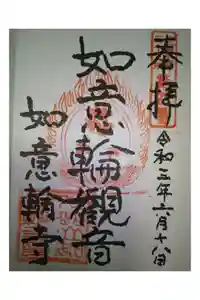 奉拝
令和三年六月十八日
如意輪観音
如意輪寺